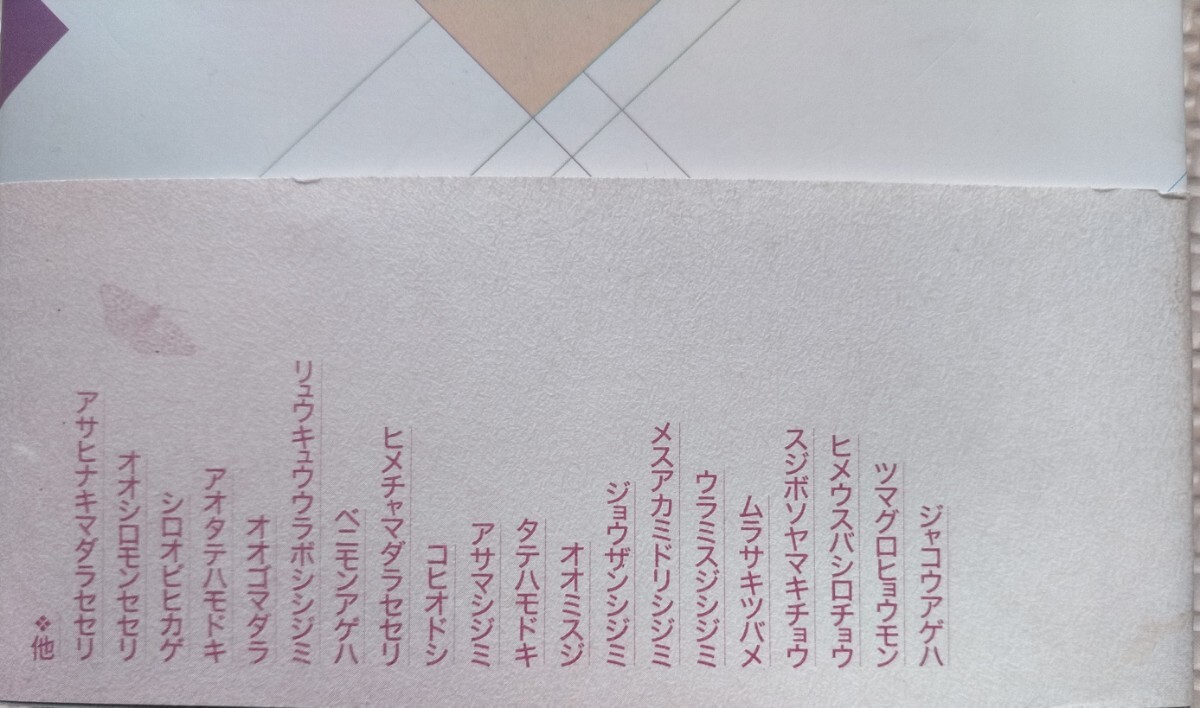 ジャコウアゲハ
ツマグロヒョウモン
ヒメウスバシロチョウ
スジボソヤマキチョウ
ムラサキツバメ
ウラミスジシジミ
メスアカミドリシジミ
ジョウザンシジミ
オオミスジ
タテハモドキ
アサマシジミ
コヒオドシ
ヒメチャマダラセセリ
ベニモンアゲハ
リュウキュウウラボシシジミ
オオゴマダラ
アオタテハモドキ
シロオビヒカゲ
オオシロモンセセリ
アサヒナキマダラセセリ
❖他